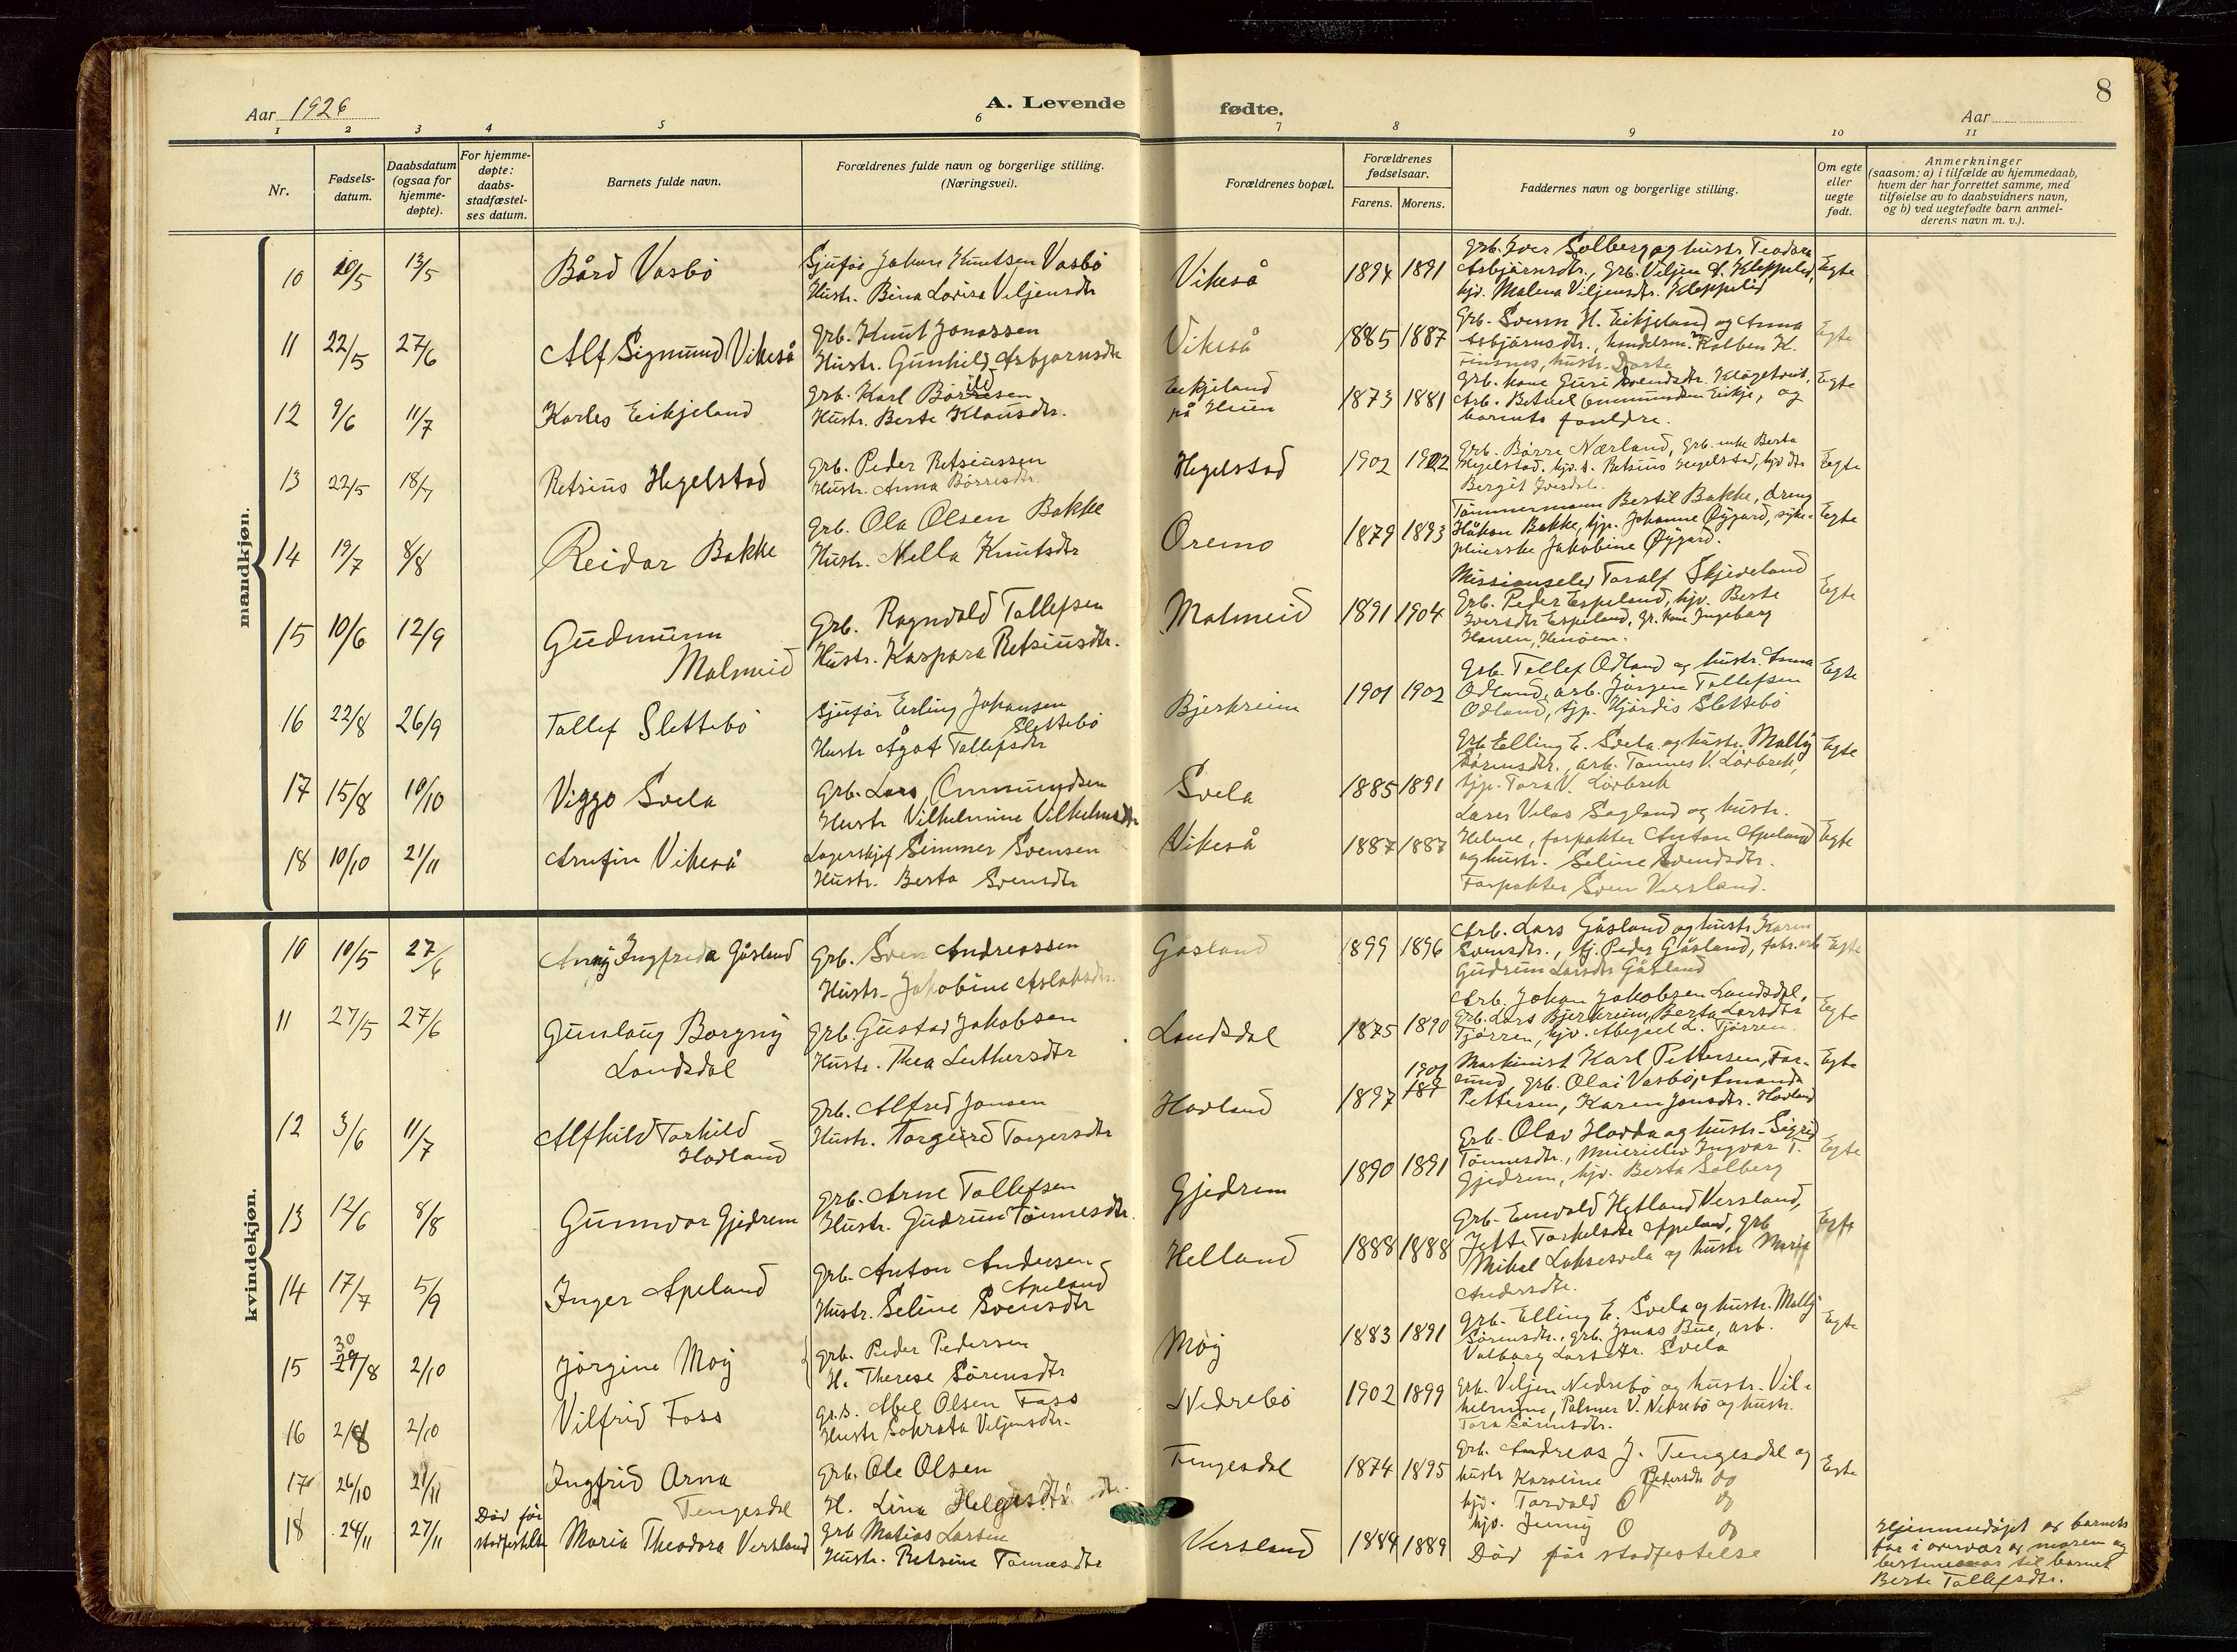 8
Aar 1926
A. Levende
fødte.
Aar
1 2 3 4 5 6 7 8 9 10 11
Nr.
Fødsels-
datum.
Daabsdatum
(ogsaa for
hjemme-
døpte).
For hjemme-
døpte:
daabs-
stadfæstel-
ses datum.
Barnets fulde navn.
Forældrenes fulde navn og borgerlige stilling.
(Næringsvei).
Forældrenes bopæl.
Forældrenes
fødselsaar.
Farens. Morens.
Faddernes navn og borgerlige stilling.
Om egte
eller
uegte
født.
Anmerkninger
(saasom: a) i tilfælde av hjemmedaab,
hvem der har forrettet samme, med
tilføielse av to daabsvidners navn,
og b) ved uegtefødte barn anmel-
derens navn m. v.).
mandkjøn.
10 20/5 13/5 Bård Vasbö
Sjufør Johan Knutsen Vasbö
Hustr. Bina Lovisa Veljensdtr
Vikeså 1894 1891
Grb. Iver Solberg og hustr. Teodora
Asbjörnsdtr., Grb. Veljen S. Kleppelid,
hjv. Malena Viljensdtr. Kleppelid
Egte
11 22/5 27/6 Alf Sigmund Vikeså
Grb. Knut Jonassen
Hustr. Gunhild Asbjørnsdtr
Vikeså 1885 1887
Grb. Svenn H. Eikjeland og Anna
Asbjörnsdtr., handelsm. Kolben H.
Finsnes, hustr. Dorte
Egte
12 9/6 11/7 Karles Eikjeland
Grb. Karl Börresen
Hustr. Berte Klausdtr.
Eikjeland
på Huen
1873 1881
Grb. kone Guri Svendsdtr. Klögetvit,
Arb. Betuel Ommundsen Eikje, og
barnets foreldre.
Egte
13 22/5 18/7 Retsius Hegelstad
Grb. Peder Retsiussen
Hustr. Anna Börresdtr.
Hegelstad 1902 1902
Grb. Börre Nærland, Grb. enke Berta
Hegelstad, hjv. s. Retsius Hegelstad, hjv dtr
Bergit Iversdatr.
Egte
14 19/7 8/8 Reidar Bakke
Grb. Ola Olsen Bakke
Hustr. Nella Knutsdtr
Oremo 1879 1893
Tömmermann Bertil Bakke, dreng
Håkon Bakke, tjp. Johanne Øygard, syke-
pleierske Jakobine Øygard.
Egte
15 10/6 12/9 Gudmunn
Malmeid
Grb. Ragnvald Tollefsen
Hustr. Kaspara Retsiusdtr.
Malmeid 1891 1904
Missionselev Toralf Skjeveland
Grb. Peder Espeland, hjv. Berte
Iversdtr Espeland, Gr. Kone Ingeborg
Hansen, Henöen.
Egte
16 22/8 26/9 Tollef Slettebö
Sjufør Erling Johansen
Slettebö
Hustr Ågot Tollefsdtr
Bjerkreim 1901 1902
Grb. Tollef Odland og hustr. Anna
Odland, arb. Jörgen Tollefsen
Odland, tjp. Hjördis Slettebö
Egte
17 15/8 10/10 Viggo Svela
Grb. Lars Ommundsen
Hustr Vilhelmine Vilhelmsdtr
Svela 1885 1891
Grb Elling E. Svela og hustr. Mally
Sörensdtr., arb. Tönnes V. Lövbrek,
tjp. Tora V. Lövbrek
Egte
18 10/10 21/11 Arnfin Vikeså
Lagerskjef Simmer Svensen
Hustr. Berta Svensdtr
Vikeså 1887 1887
Lærer Vilas Sagland og hustr.
Helene, forpakter Anton Apeland
og hustr. Seline Svendsdtr.
Forpakter Sven Versland.
Egte
kvindekjøn.
10 10/5 27/6 Anny Ingfreda Gåsland
Grb. Sven Andreassen
Hustr. Jakobine Aslaksdtr.
Gåsland 1899 1896
Arb. Lars Gåsland og hustr. Karen
Svensdtr., tj. Peder Gåsland, fabr. arb
Gudrun Larsdtr Gåsland
Egte
11 27/5 27/6 Gunlaug Borgny
Landsdal
Grb. Gustav Jakobsen
Hustr. Thea Luthersdtr
Landsdal 1875 1890
Arb. Johan Jakobsen Landsdal,
Grb. Lars Bjerkreim, Berta Larsdtr
Tjörren, hjv. Abigael L. Tjörren.
Egte
12 3/6 11/7 Alfhild Torhild
Hovland
Grb. Alfred Jonsen
Hustr. Torgierd Torgersdtr
Hovland 1897 1901
Maskinist Karl Pettersen, Far-
sund, grb. Olai Vasbö, Amanda
Pettersen, Karen Jonsdtr. Hovland
Egte
13 12/6 8/8 Gunnvor Gjedrem
Grb. Arne Tollefsen
Hustr. Gudrun Tönnesdtr.
Gjedrem 1890 1891
Grb. Olav Hovda og hustr. Sigrid
Tönnesdtr., Meierielev Ingvar T.
Gjedrem, hjv. Berta Solberg
Egte
14 17/7 5/9 Inger Apeland
Grb. Anton Andersen
Apeland
Hustr. Seline Svensdtr
Helland 1888 1888
Grb. Enevald Hetland Versland,
Jette Torkelsdtr Apeland, grb
Mikal Laksesvela og hustr Maria
Andersdtr.
Egte
15 30/8 2/10 Jörgine Moy
Grb. Peder Pedersen
H. Therese Sörensdtr
Moy 1883 1891
Grb. Elling E. Svela og hustr. Mally
Sörensdtr., grb. Jonas Bue, arb.
Valborg Larsdtr. Svela
Egte
16 2/8 2/10 Vilfrid Foss
Gr.s. Abel Olsen Foss
Hustr Sokrata Veljensdtr.
Nedrebö 1902 1899
Grb. Veljen Nedrebö og hustr. Vil-
helmine, Palmer V. Nedrebö og hustr.
Tora Sörensdtr.
17 26/10 21/11 Ingfrid Arna
Tengesdal
Grb. Ole Olsen
H. Lina Helgesdtr
Tengesdal 1874 1895
Grb. Andreas J. Tengesdal og
hustr Karoline Petersdtr og
hjv. Torvald O og
hjv. Jenny O og
Egte
18 24/11 27/11 Död før
stadfestelse
Maria Theodora Versland
Grb Matias Larsen
Hustr. Retsine Tönnesdtr
Versland 1884 1889
Död før stadfestelse
Hjemmedöpt av barnets
far i overvær av moren og
bestemor til barnet
Berte Tollefsdtr.